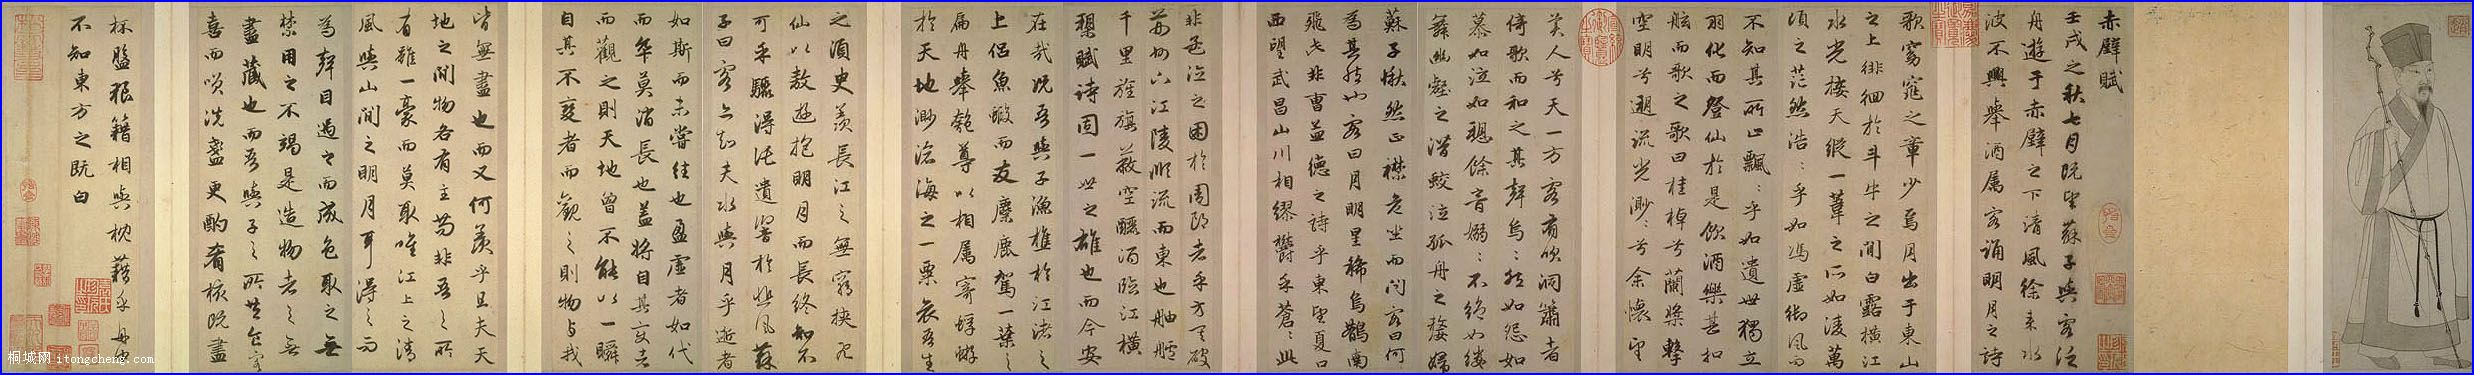 赤壁賦
壬戌之秋七月既望蘇子與客泛
舟遊于赤壁之下清風徐來水
波不興舉酒属客誦明月之詩
歌窈窕之章少焉月出于東山
之上徘徊於斗牛之間白露橫江
水光接天縱一葦之所如淩萬
頃之茫然浩〻乎如馮虛御風而
不知其所止飄〻乎如遺世獨立
羽化而登仙於是飲酒樂甚扣
舷而歌之歌曰桂棹兮蘭槳擊
空明兮遡流光渺〻兮余懷望
美人兮天一方客有吹洞簫者
倚歌而和之其聲烏〻然如怨如
慕如泣如訴餘音嫋〻不絕如縷
舞幽壑之潛蛟泣孤舟之嫠婦
蘇子愀然正襟危坐而問客曰何
為其然也客曰月明星稀烏鵲南
飛此非曹孟德之詩乎東望夏口
西望武昌山川相繆欝乎蒼〻此
非孟德之困於周郎者乎方其破
荊州下江陵順流而東也舳艫
千里旌旗蔽空釃酒臨江橫
槊賦詩固一世之雄也而今安
在哉況吾與子漁樵於江渚之
上侶魚鰕而友麋鹿駕一葉之
扁舟舉匏尊以相属寄蜉蝣
於天地渺滄海之一粟哀吾生
之須臾羨長江之無窮挾飛
仙以遨遊抱明月而長終知不
可乎驟得託遺響於悲風蘇
子曰客亦知夫水與月乎逝者
如斯而未嘗往也盈虛者如代
而卒莫消長也蓋將自其變者
而觀之則天地曾不能以一瞬
自其不變者而觀之則物与我
皆無盡也而又何羨乎且夫天
地之間物各有主苟非吾之所
有雖一豪而莫取唯江上之清
風與山間之明月耳得之而
為聲目遇之而成色取之無
禁用之不竭是造物者之無
盡藏也而吾與子之所共食客
喜而笑洗盞更酌肴核既盡
杯盤狼籍相與枕藉乎舟中
不知東方之既白
桐城网 itongcheng.com